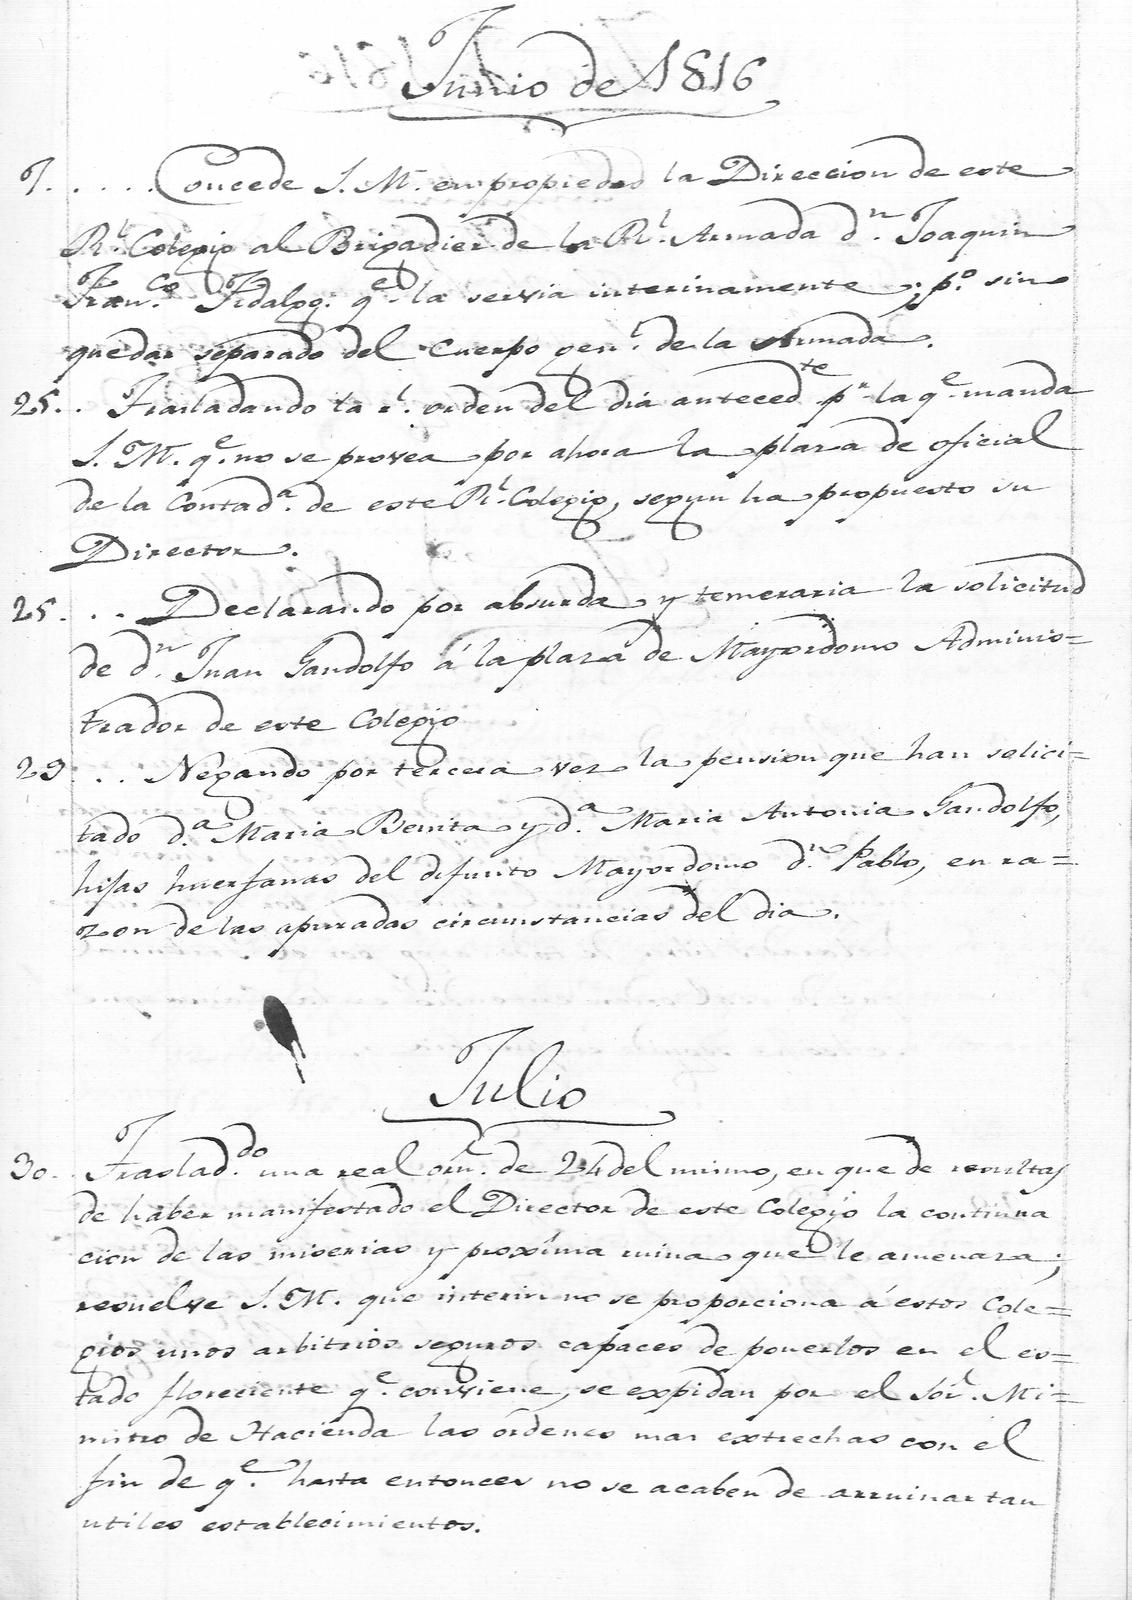 Junio de 1816
7. . . . . Concede S. M. en propiedad la Direccion de este
Rl. Colegio al Brigadier de la Rl. Armada dn. Joaquin
Franco. Fidalgo. qe. la servia interinamente; po. sin
quedar separado del Cuerpo genl. de la Armada.
25. . Trasladando la rl. orden del dia antecedte. pr. la qe. manda
S. M. qe. no se provea por ahora la plaza de oficial
de la Contada. de este Rl. Colegio, segun ha propuesto su
Director.
25. . . Declarando por absurda y temeraria la solicitud
de dn. Juan Gandolfo á la plaza de Mayordomo Adminis=
trador de este Colegio
29 . . . Negando por tercera vez la pension que han solici=
tado da. Maria Benita y da. Maria Antonia Gandolfo,
hijas huerfanas del difunto Mayordomo dn. Pablo, en ra=
zon de las apuradas circunstancias del dia.
Julio
30. Trasladdo. una real orn. de 24 del mismo, en que de resultas
de haber manifestado el Director de este Colegio la continua
cion de las miserias y proxîma ruina que le amenaza;
resuelve S. M. que interin no se proporciona á estos Cole=
gios unos arbitrios seguros capaces de ponerlos en el es=
tado floreciente qe. conviene, se expidan por el Sor. Mi=
nistro de Hacienda las órdenes mas extrechas con el
fin de qe. hasta entonces no se acaben de arruinar tan
utiles establecimientos.